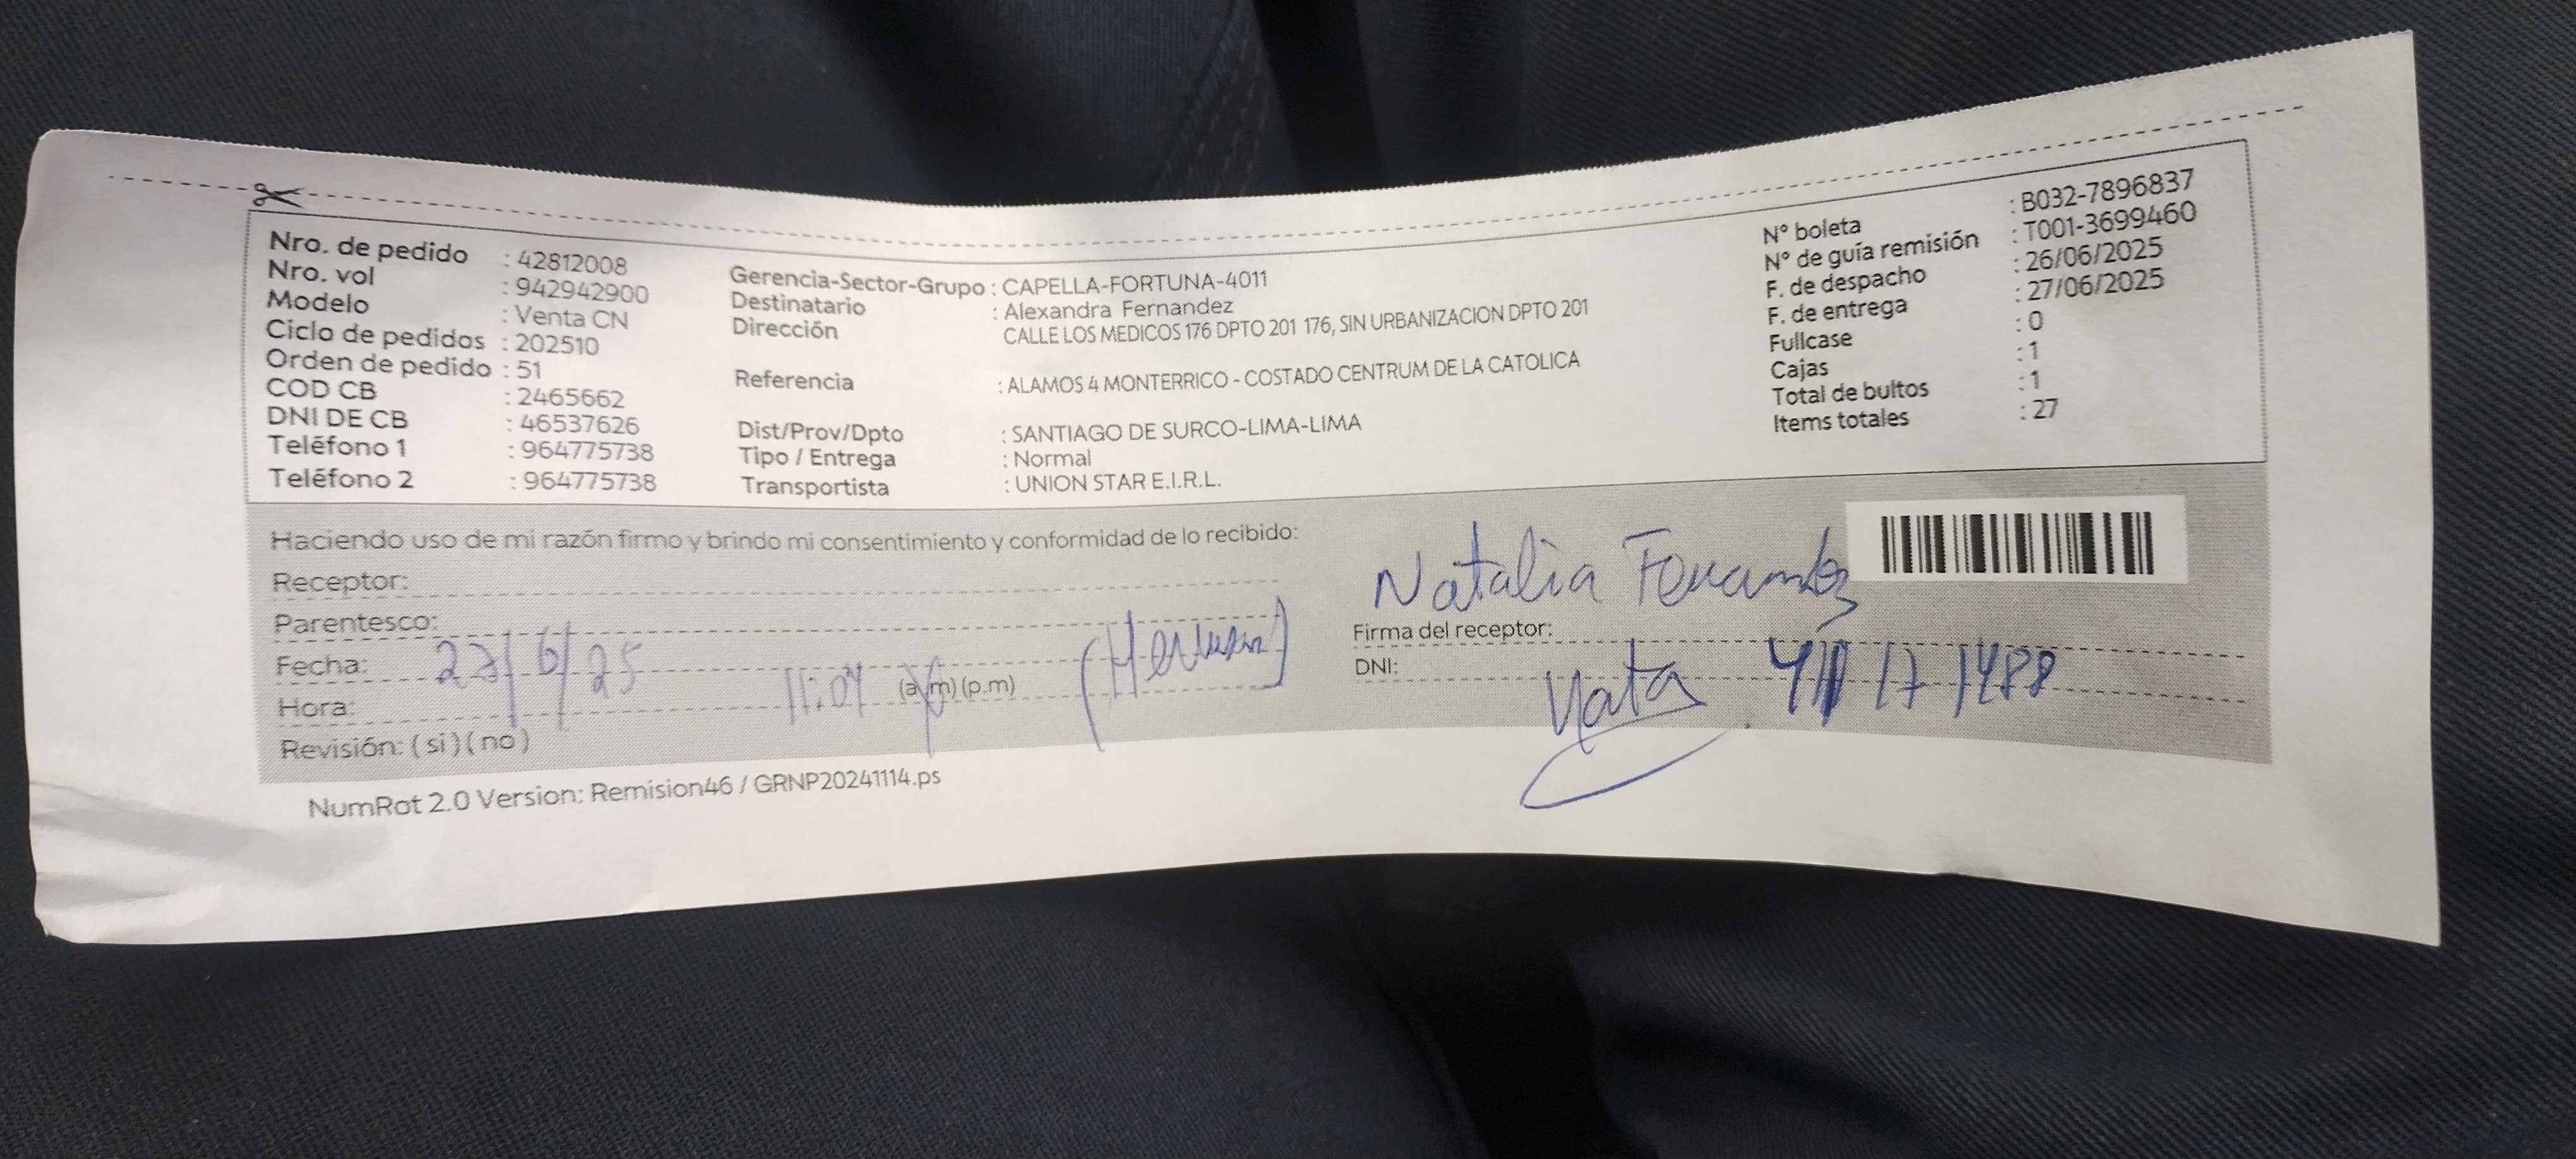 Nro. de pedido : 42812008
Nro. vol : 942942900
Modelo : Venta CN
Ciclo de pedidos : 202510
Orden de pedido : 51
COD CB : 2465662
DNI DE CB : 46537626
Teléfono 1 : 964775738
Teléfono 2 : 964775738
Gerencia-Sector-Grupo : CAPELLA-FORTUNA-4011
Destinatario : Alexandra Fernandez
Dirección CALLE LOS MEDICOS 176 DPTO 201 176, SIN URBANIZACION DPTO 201
Referencia : ALAMOS 4 MONTERRICO - COSTADO CENTRUM DE LA CATOLICA
Dist/Prov/Dpto : SANTIAGO DE SURCO-LIMA-LIMA
Tipo / Entrega : Normal
Transportista : UNION STAR E.I.R.L.
N° boleta : B032-7896837
N° de guía remisión : T001-3699460
F. de despacho : 26/06/2025
F. de entrega : 27/06/2025
Fullcase : 0
Cajas : 1
Total de bultos : 1
Items totales : 27
Haciendo uso de mi razón firmo y brindo mi consentimiento y conformidad de lo recibido:
Receptor:
Parentesco:
Fecha: 27/6/25
Hora: 11:04 (a.m) (p.m)
Revisión: ( si ) ( no )
Natalia Fernandez
Firma del receptor:
DNI:
Nata
NumRot 2.0 Version: Remision46 / GRNP20241114.ps